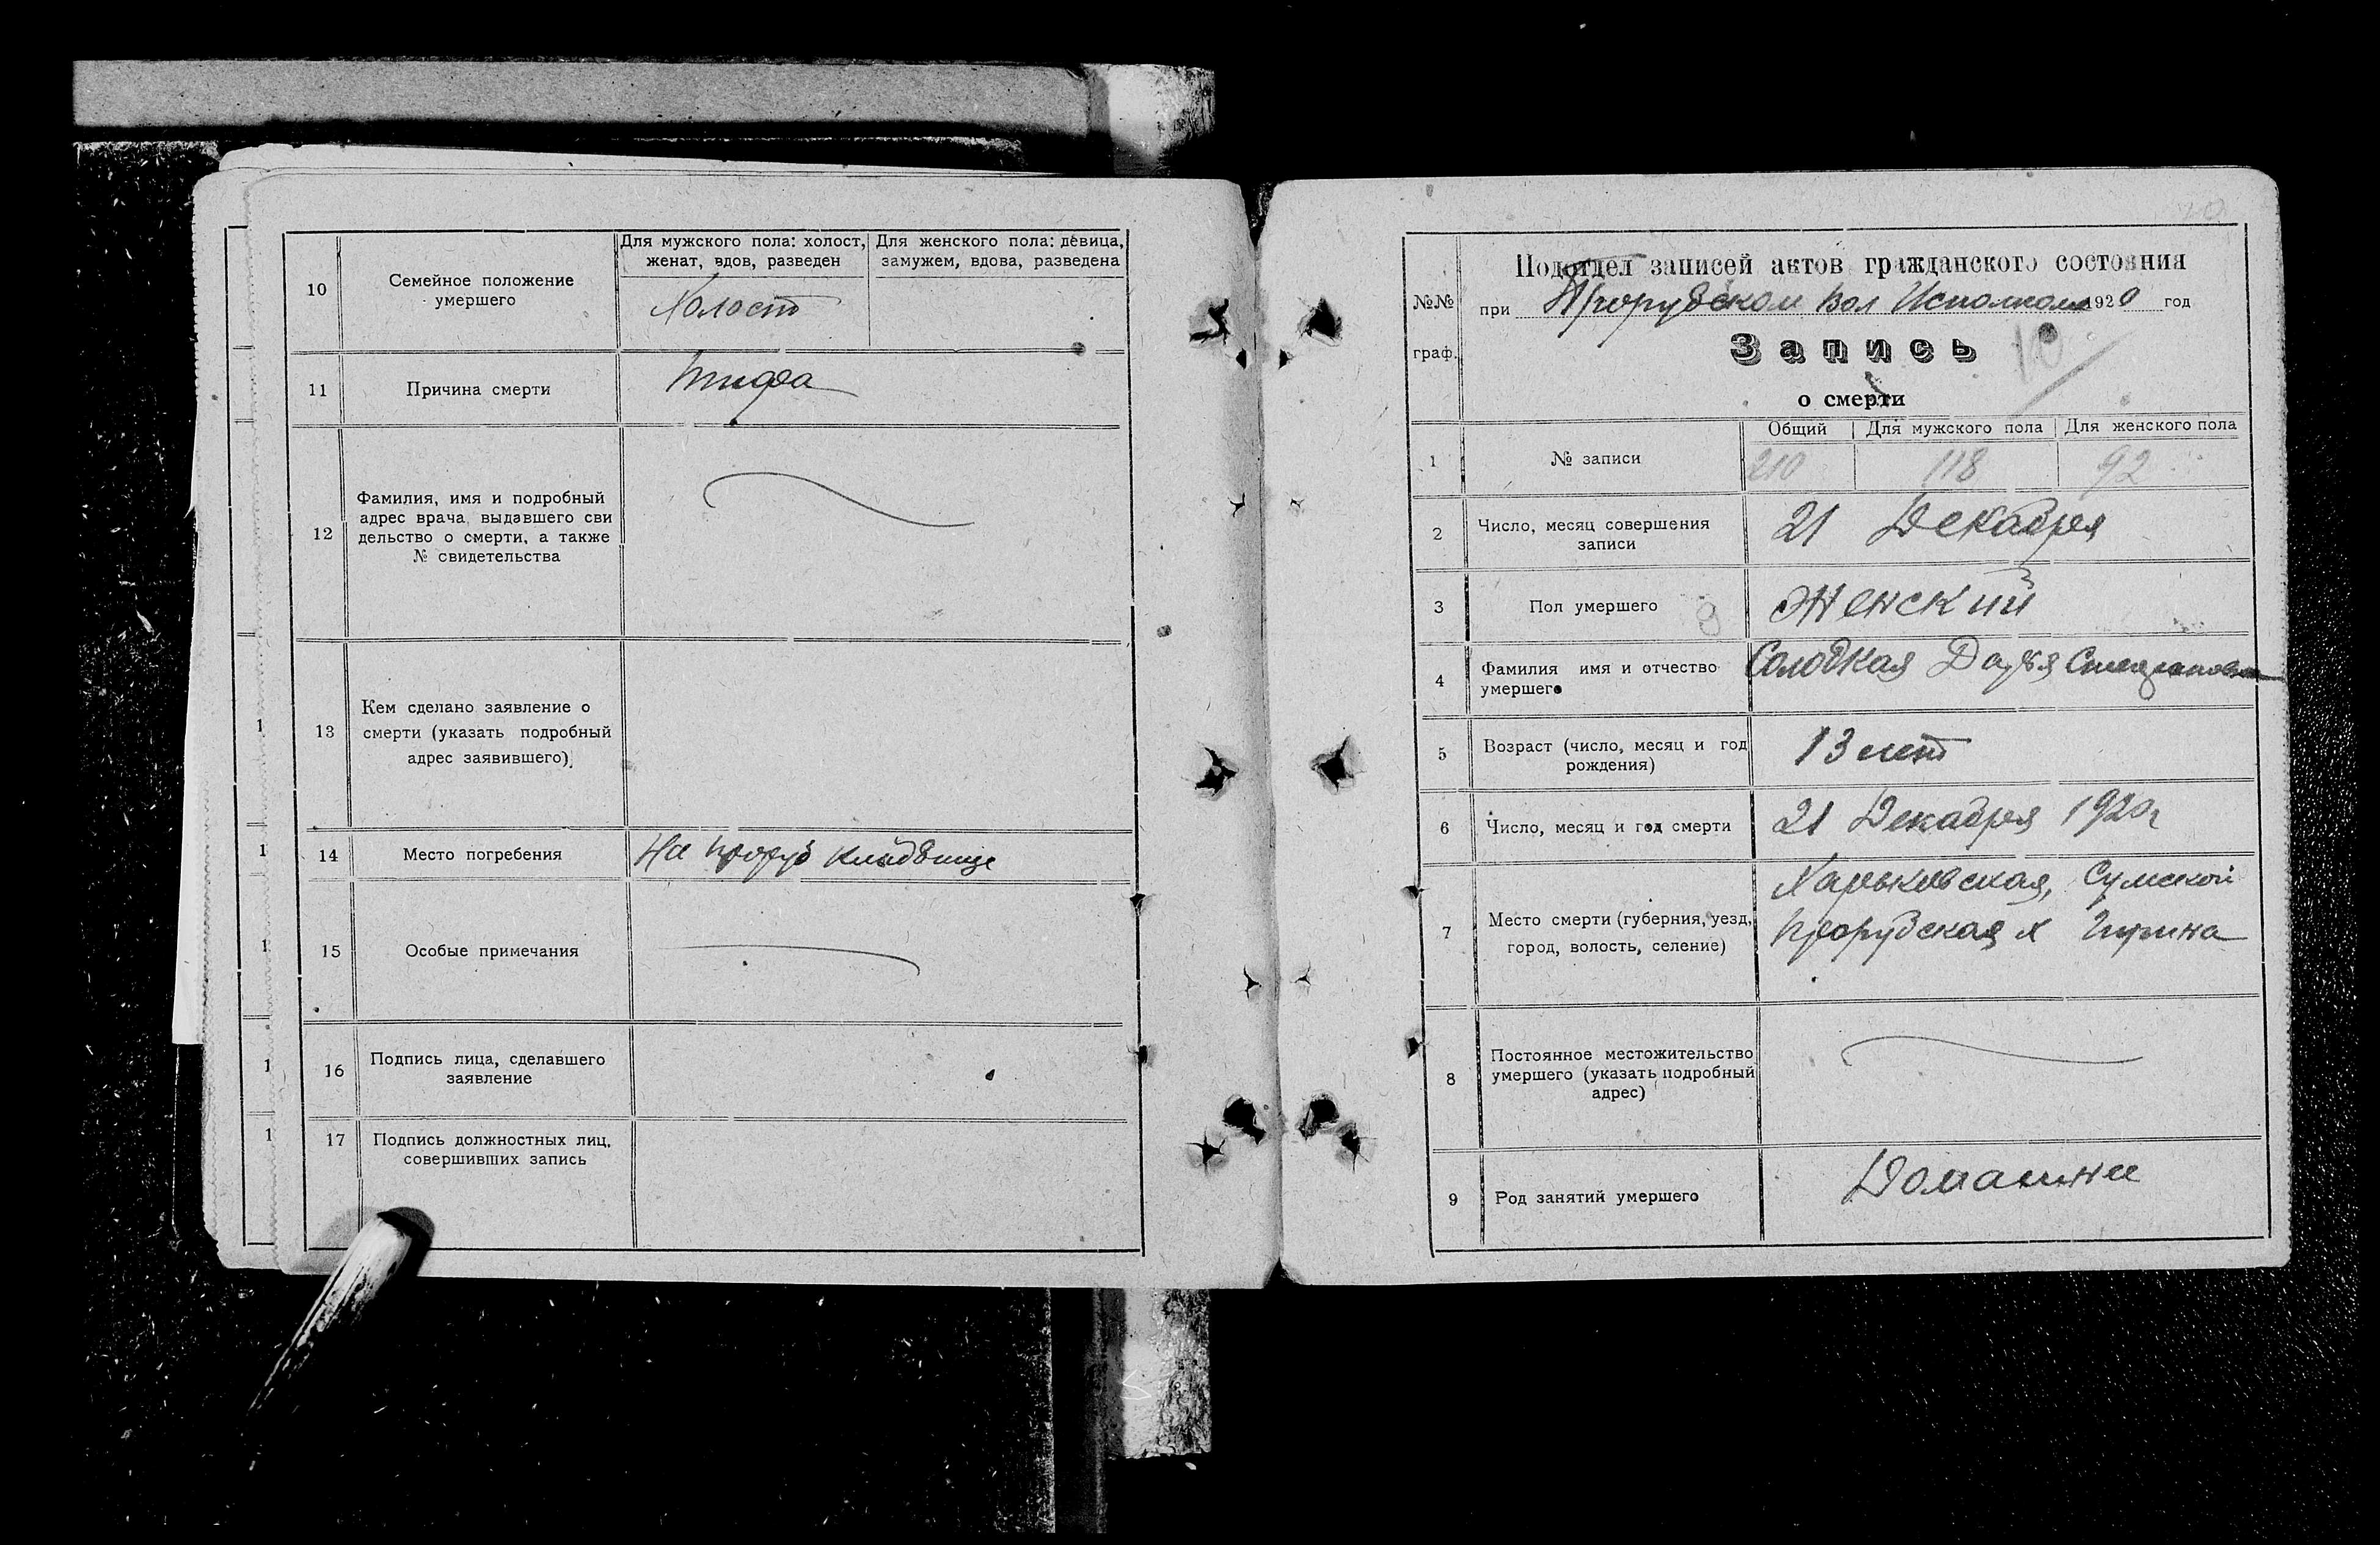 10
Семейное положение
умершего
Для мужского пола: холост,
женат, вдов, разведен
Для женского пола: девица,
замужем, вдова, разведена
Холост
11
Причина смерти
тифа
12
Фамилия, имя и подробный
адрес врача, выдавшего сви
дельство о смерти, а также
№ свидетельства
13
Кем сделано заявление о
смерти (указать подробный
адрес заявившего)
14
Место погребения
На Проруб кладвище
15
Особые примечания
16
Подпись лица, сделавшего
заявление
17
Подпись должностных лиц,
совершивших запись
№№
граф.
Подотдел записей актов гражданского состояния
при Прорубском Вол Исполком 1920 год
Запись
10
о смерти
1
№ записи
Общий
Для мужского пола
Для женского пола
210
118
92
2
Число, месяц совершения
записи
21 Декабря
3
Пол умершего
Женский
4
Фамилия имя и отчество
умершего
Солодкая Дарья
5
Возраст (число, месяц и год
рождения)
13 лет
6
Число, месяц и год смерти
21 Декабря 1920г
7
Место смерти (губерния, уезд,
город, волость, селение)
Харьковская, Сумской
Прорубская х
8
Постоянное местожительство
умершего (указать подробный
адрес)
9
Род занятий умершего
Домашне